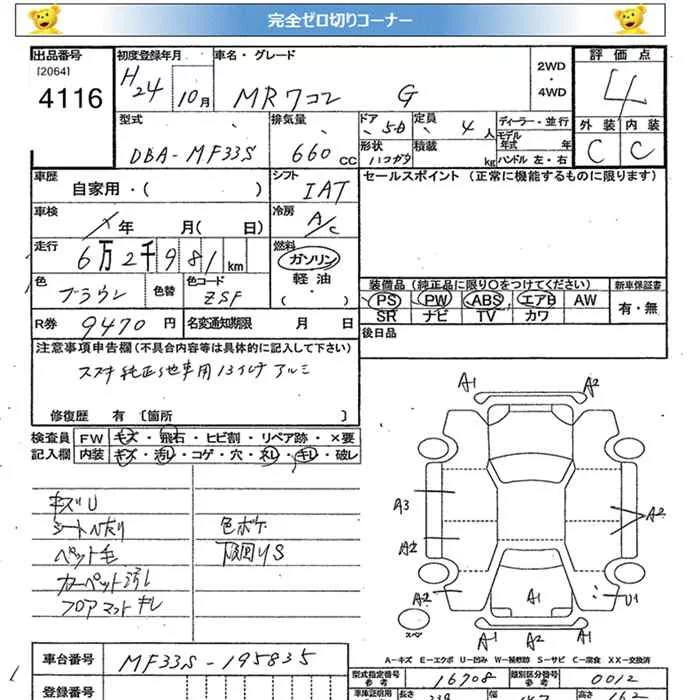 完全ゼロ切りコーナー
出品番号
[2064]
4116
初度登録年月
H24 10月
車名・グレード
MRワゴン G
2WD
・
4WD
評価点
4
外装 内装
C C
型式
DBA-MF33S
排気量
660 CC
ドア
5D
形状
ハコガタ
定員
4人
積載
kg
ディーラー・並行
モデル
年式 年
ハンドル 左・右
車歴
自家用・( )
シフト
IAT
セールスポイント (正常に機能するものに限ります)
車検
年 月( 日)
冷房
A/C
走行
6万2千981km
燃料
ガソリン
軽油
・
( )
色
ブラウン
色替
色コード
ZSF
装備品(純正品に限り○をつけてください)
PS PW ABS エアB AW
SR ナビ TV カワ
新車保証書
有・無
R券
9470 円
名変通知期限 月 日
後日品
注意事項申告欄(不具合内容等は具体的に記入して下さい)
スズキ純正他車用13インチアルミ
修復歴 有〔箇所 〕
検査員 FW キズ・飛石・ヒビ割・リペア跡・×要
記入欄 内装 キズ・汚レ・コゲ・穴・スレ・キレ・破レ
キズU
シートヘタリ
ペット毛
カーペット汚レ
フロアマットキレ
色ボケ
下回りS
A1 A2
A3
A2
A2
A2
A1
U1
スペア
A1 A2 A1
A-キズ E-エクボ U-凹み W-補修跡 S-サビ C-腐食 XX-交換済
車台番号
MF33S-195835
型式指定番号
参考
16708
類別区分番号
参考
0012
登録番号
車庫証明用
参考
長さ
幅
高さ